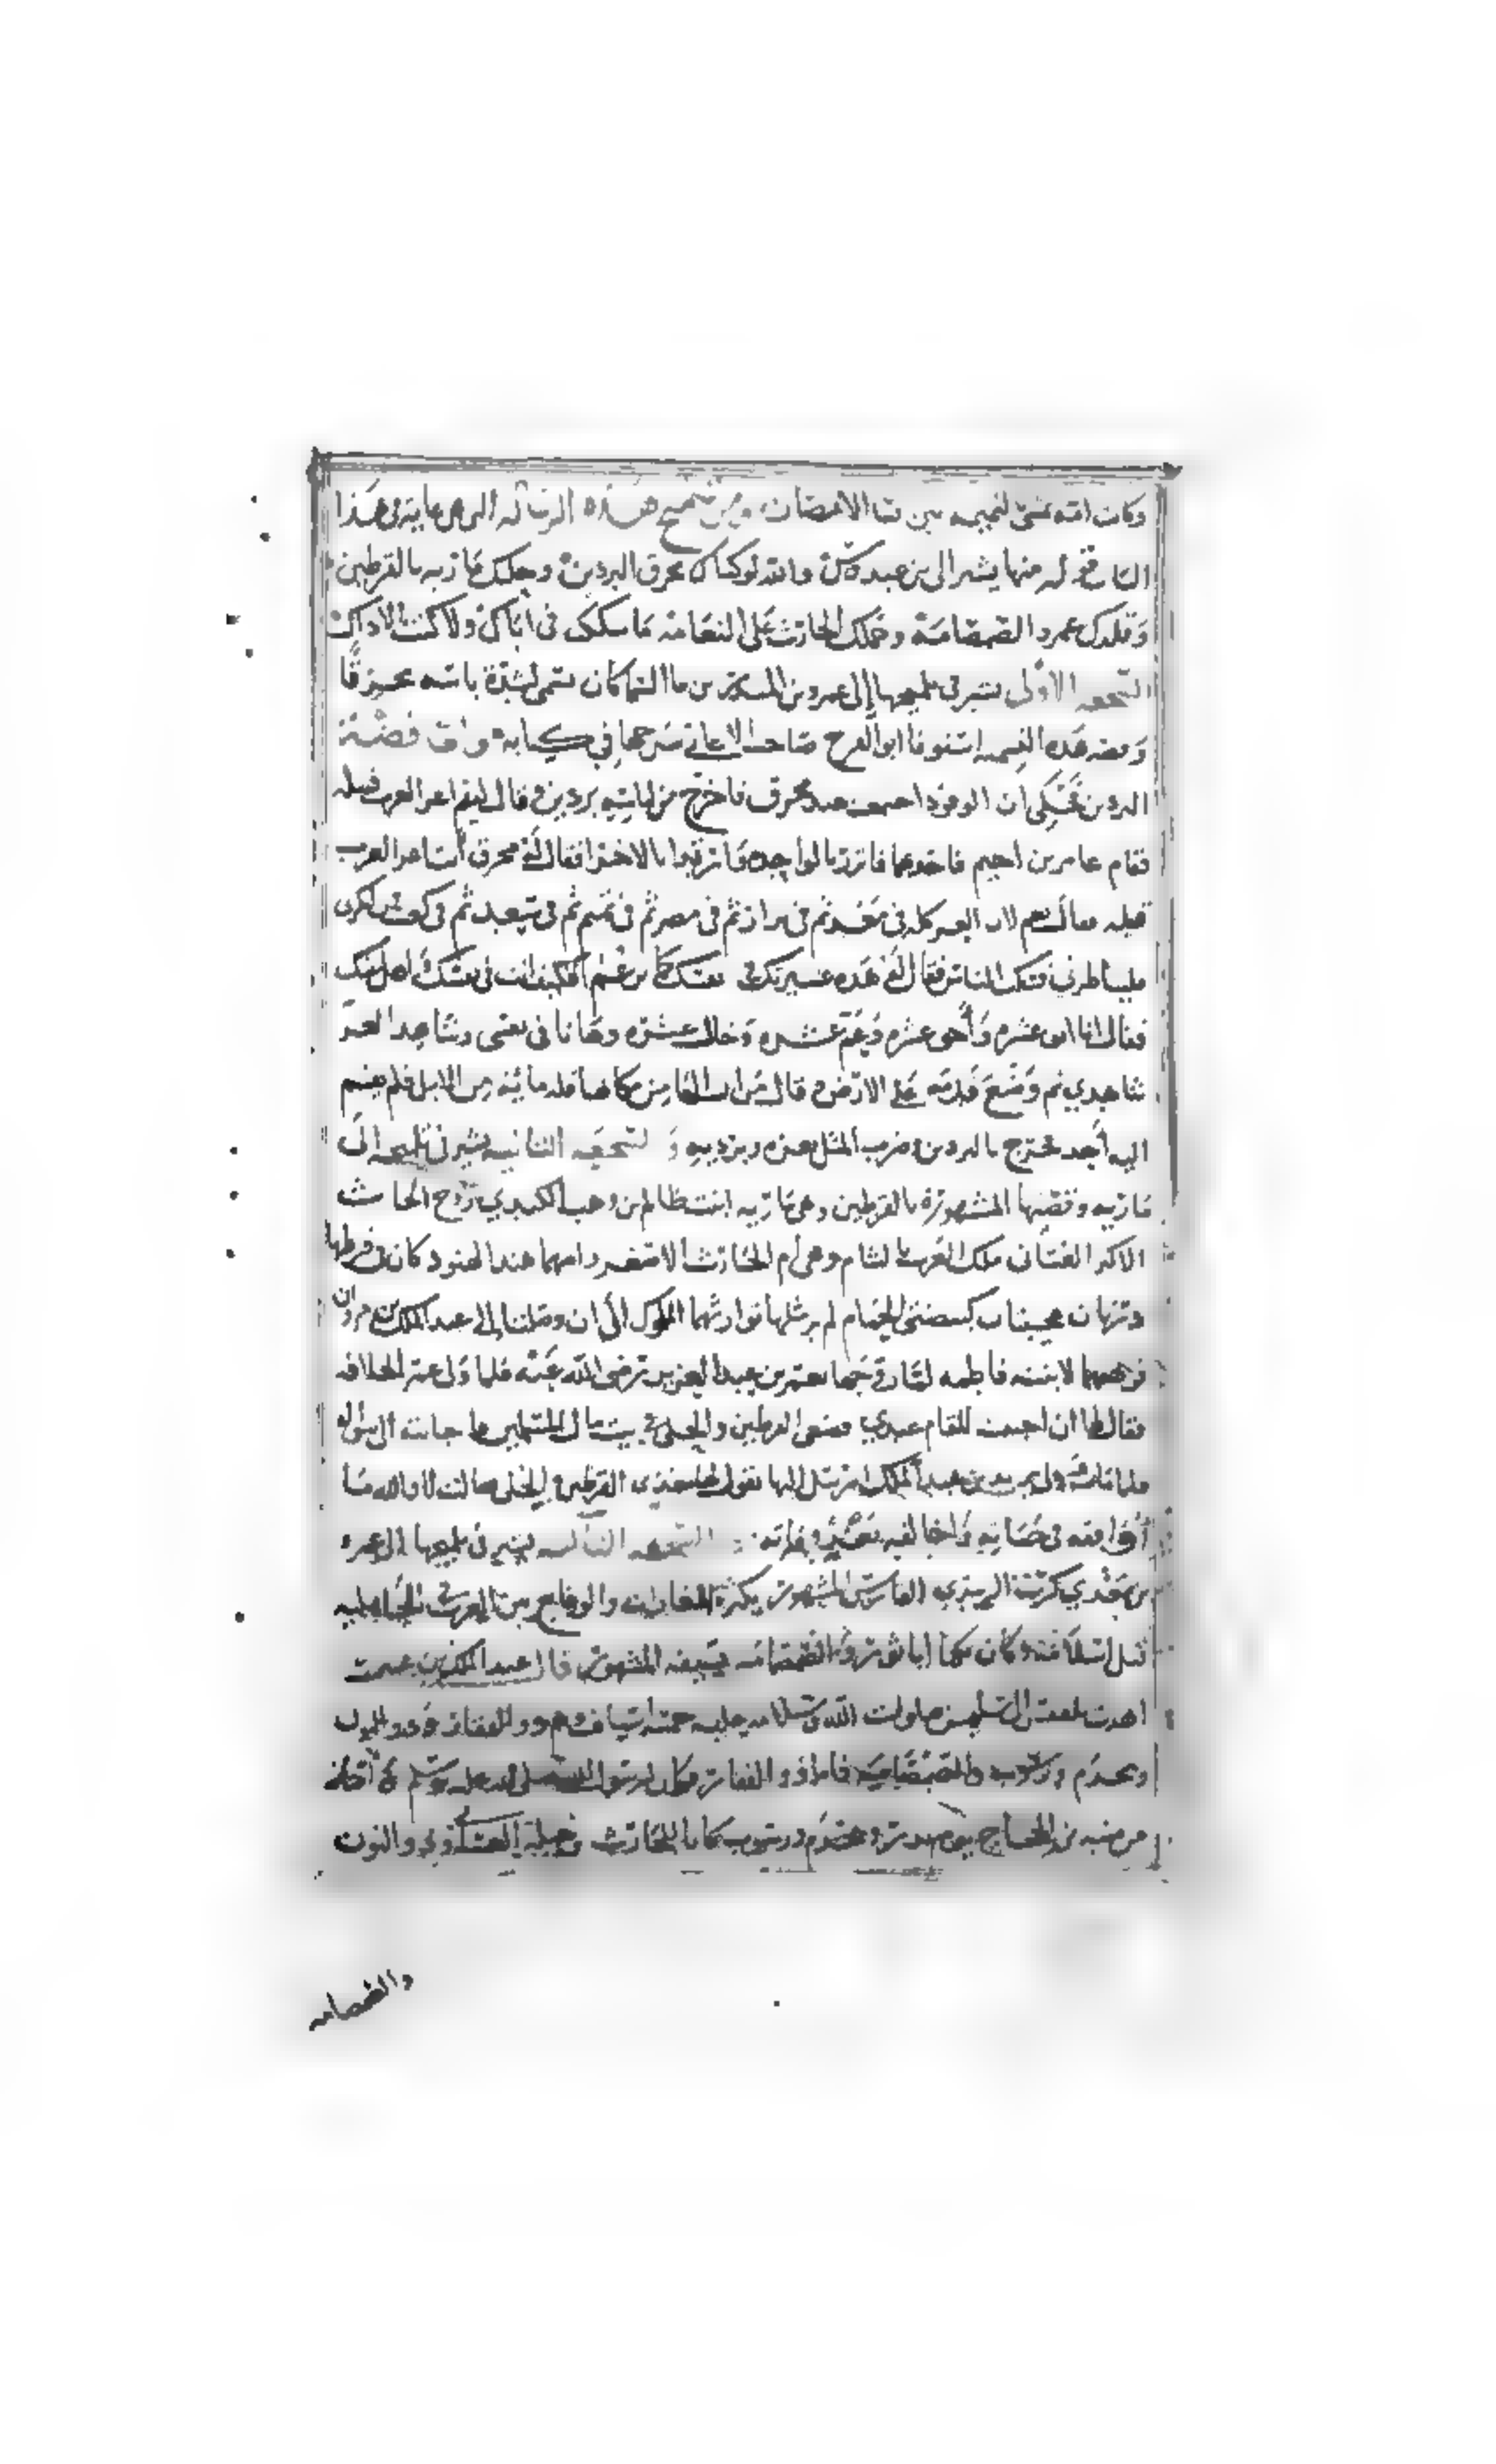 وكانت امّه تمشى لنجيبه بين هذا الامضان ومن تلميح هذه الرساله التى هى غايه فى هذا
الباب قوله منها يشير الى بن عبدوس والله لو كساك محرق البردين وحلتك مارية بالقرطين
وقلدك عمرو الصمصامة وحملك الحارث على النعامه ما شككت فى اباك ولا كنت الا ذاك
السجعه الأولى يشير فى تلميحها إلى عمرو بن المنذر بن ما السما كان يسمى لشدة باسه محرقًا
وهذه القسمه استوفا ابو الفرج صاحب الاغانى شرحها فى كتابه واما قصة
البردين فحكى ان الوفود اجتمعت عند محرق فاخرج من لباسه بردين وقال ليقم اعز العرب قبيله
فقام عامر بن احيم فاخذهما فاتزر بالواحده وارتدا بالاخرى فقال له محرق أنت اعز العرب
قبيله فقال نعم لان العز كله فى معد ثم فى نزار ثم فى مضر ثم فى تميم ثم فى سعد ثم فى كعب فمن انكر
فليناظرنى فسكت الناس فقال له هذه عشيرتك كما تزعم فكيف انت فى نفسك واهل بيتك
فقال انا ابو عشرة وأخو عشرة وعم عشرة وخال عشرة وها انا فى نفسى وشاهد العز
شاهدي ثم وضع قدمه على الارض وقال من ازالها من مكانها فله مائة من الابل فلم يقم
اليه أحد فخرج بالبردين وضرب المثل بعزه وبرديه و السجعه الثانيه يشير فى تلميحه الى
ماريه وقصتها المشهورة بالقرطين وهى ماريه ابنت ظالم بن وهب الكندي زوج الحارث
الاكبر الغسانى ملك العرب بالشام وهى أم الحارث الاصغر وامهما هند الهنود كان فى قرطيها
درتان عجيبتان كبيضتى الحمام لم ير مثلها توارثهما الملوك الى ان وصلتا إلى عبد الملك بن مروان
فوهبهما لابنته فاطمه لما زوجها بعمر بن عبد العزيز رضى الله عنه فلما ولى عمر الخلافه
فقال لها ان احببت المقام عندي فضعى القرطين والحلى فى بيت مال المسلمين فاجابته الى سؤاله
فلما مات عمر ولى يزيد بن عبد الملك ارسل اليها يقول لها خذى القرطين والحلى فقالت لا والله ما
أوافقه فى حياته وأخالفه بعد وفاته السجعه الثالثه يشير فى تلميحها الى عمرو
بن معدي كرب الزبيدي الفارس المشهور بكثرة الغارات والوقايع بين العرب فى الجاهليه
قبل اسلامه وكان يكنا اباثور والصمصامه سيفه المشهور قال عبد الملك بن عمير
اهدت بلقيس الى سليمان صلوات الله وسلامه عليه خمسة اسياف وهم ذو الفقار وذو النون
ومخدم ورسوب والصمصامه فاما ذو الفقار فكان لرسول الله صلى الله عليه وسلم اخذه
من منبه بن الحجاج يوم بدر ومخدم ورسوب كانا للحارث بن جبلة الغسانى وذو النون
والصمصامه